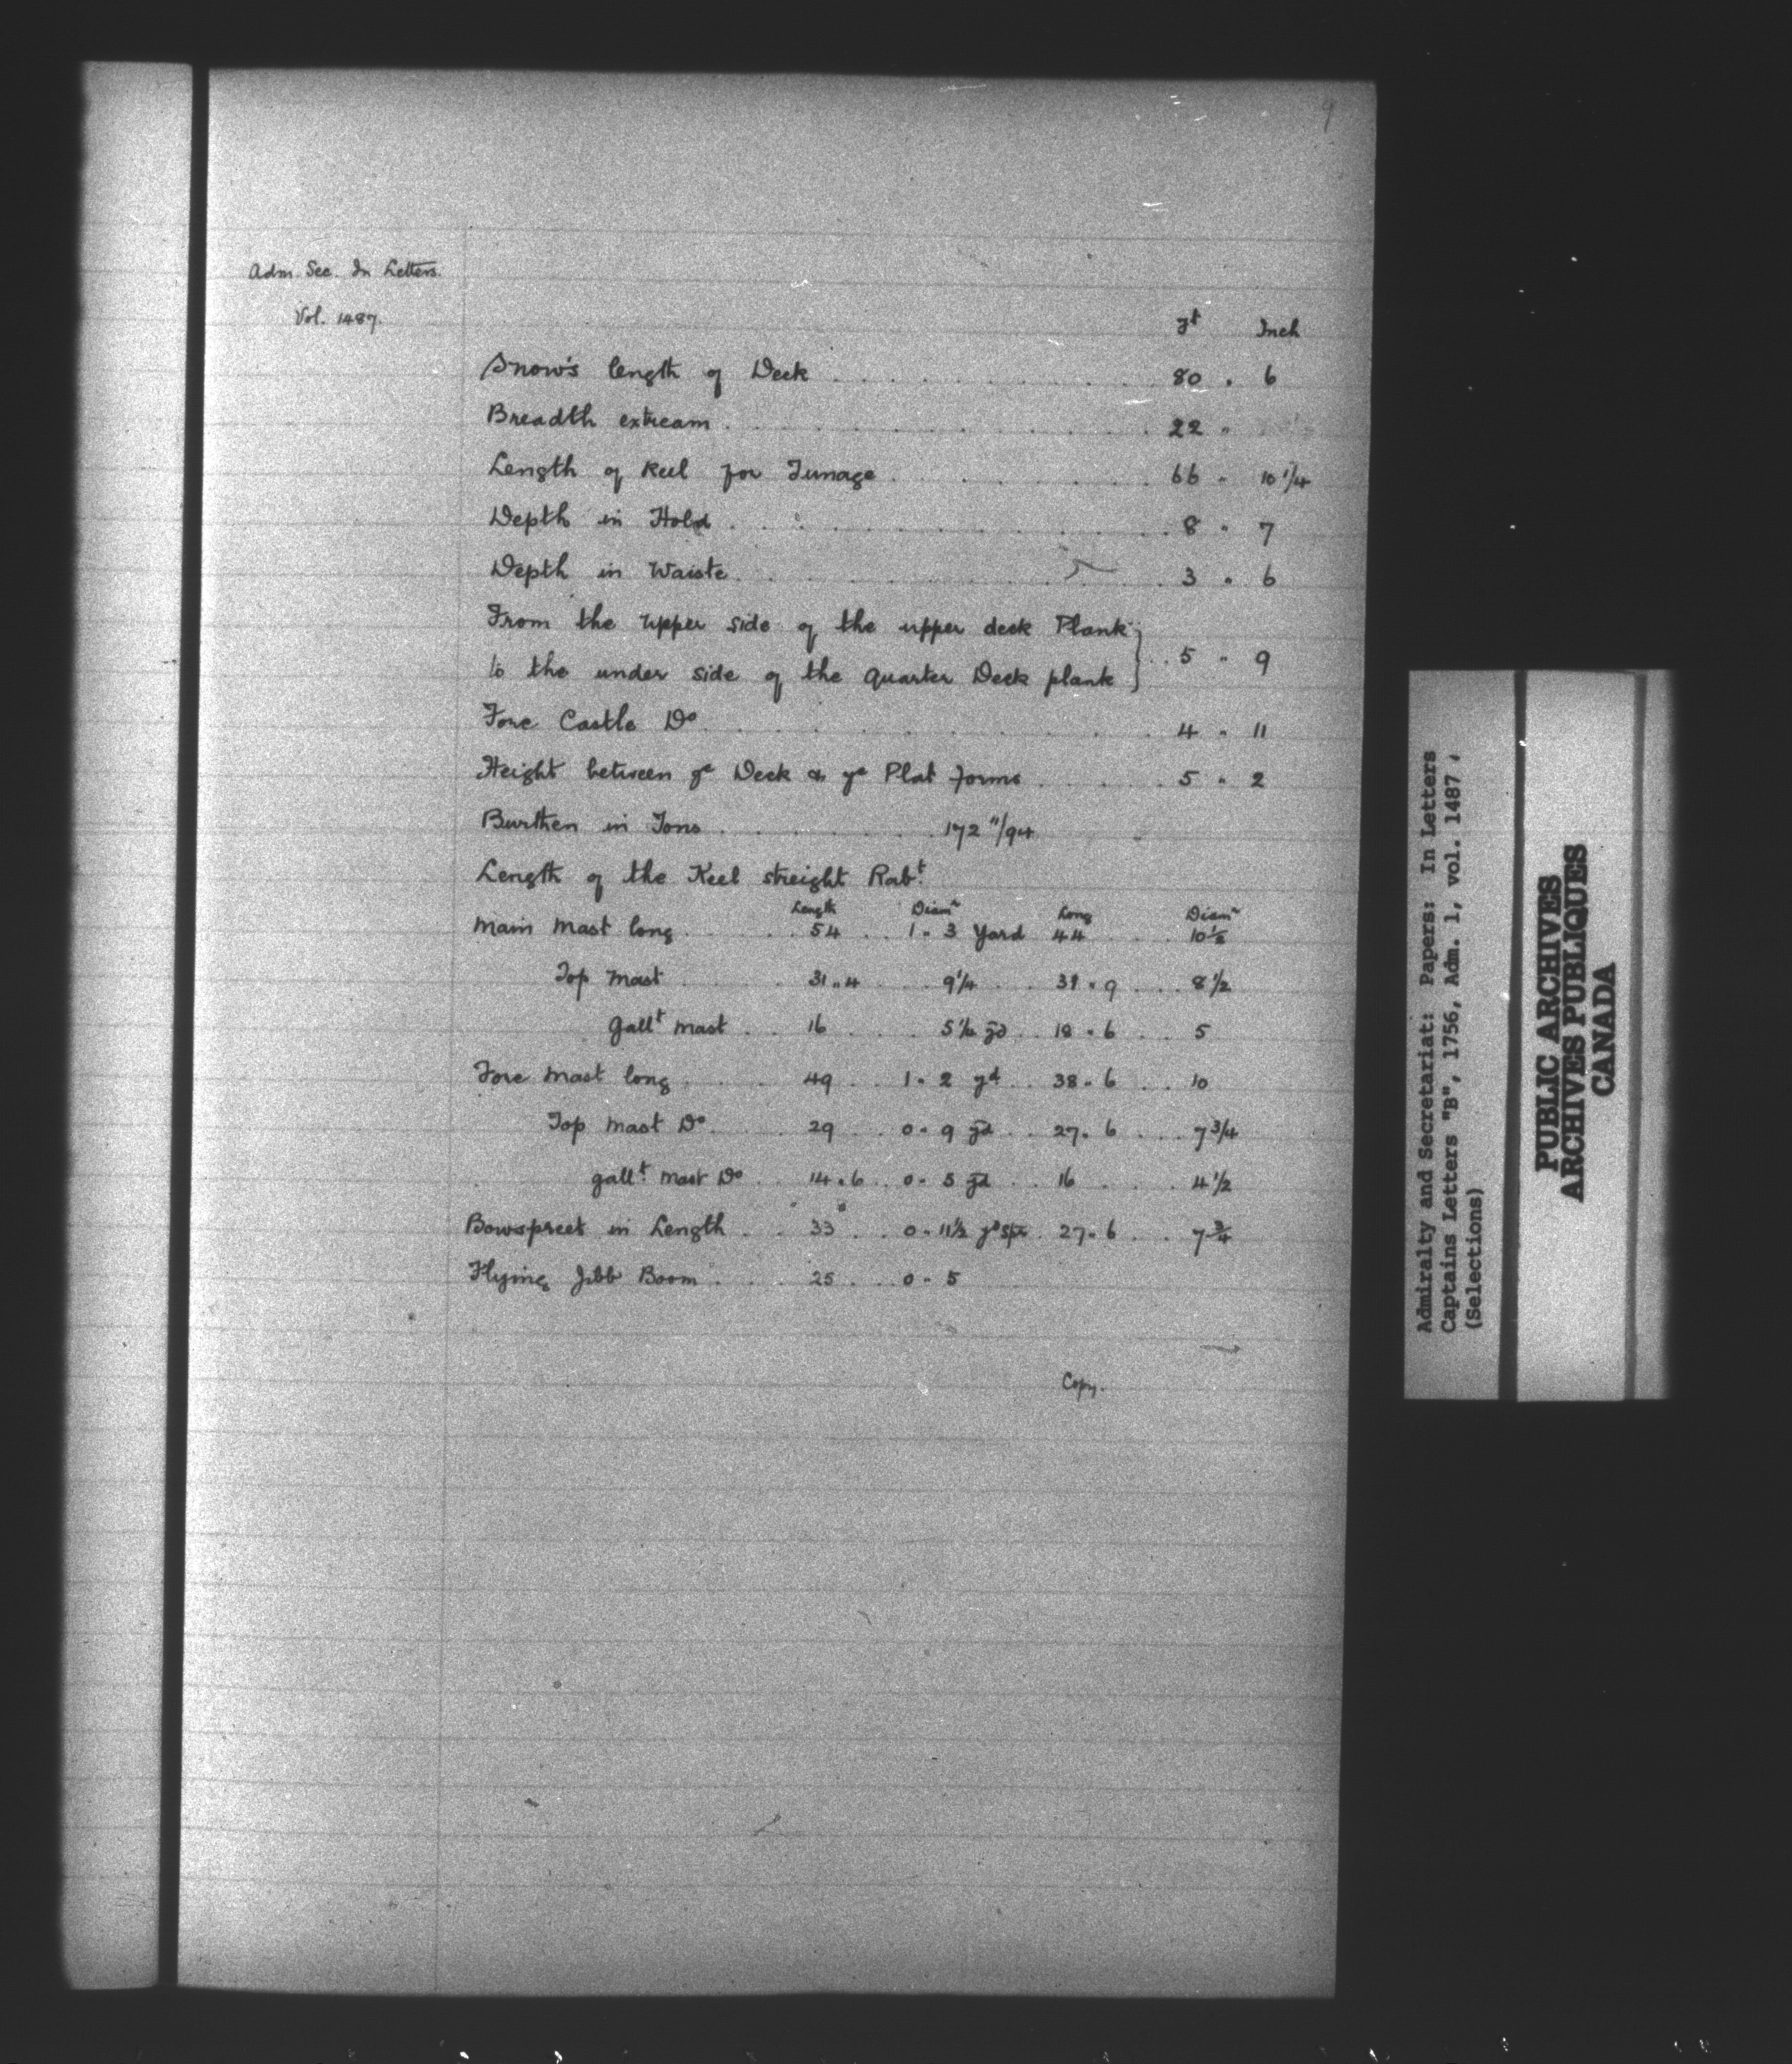 9
Adm. Sec. In Letters.
Vol. 1487.
Ft Inch
Snow's length of Deck . . . . . 80 " 6
Breadth extream . . . . . 22 "
Length of Keel for Tunage . . . . . 66 " 10 1/4
Depth in Hold . . . . . 8 " 7
Depth in Waiste . . . . . 3 " 6
From the upper side of the upper deck Plank
to the under side of the quarter Deck plank } . . 5 " 9
Fore Castle Do . . . . . 4 " 11
Height between ye Deck & ye Plat forms . . . . . 5 " 2
Burthen in Tons . . . . . 172 11/94
Length of the Keel streight Rabt.
Length Diamr Long Diamr
Main Mast long . . . . . 54 . . 1 " 3 Yard 44 . . . 10 1/2
Top Mast . . . . . 31 " 4 . . . 9 1/4 . . . 31 " 9 . . . 8 1/2
Gallt Mast . . 16 . . . . 5 1/2 yd . . 18 " 6 . . 5
Fore Mast long . . . . . 49 . . 1 " 2 yd . . 38 " 6 . . 10
Top Mast Do . . . . 29 . . 0 " 9 yd . . 27 " 6 . . . 7 3/4
gallt Mast Do . . 14 " 6 . . 0 " 5 yd . . 16 . . . . 4 1/2
Bowspreet in Length . . . 33 . . . 0 " 11 1/2 yd Spr. 27 " 6 . . . 7 3/4
Flying Jibb Boom . . . . 25 . . . 0 " 5
Copy.
Admiralty and Secretariat: Papers: In Letters
Captains Letters "B", 1756, Adm. 1, vol. 1487,
(Selections)
PUBLIC ARCHIVES
ARCHIVES PUBLIQUES
CANADA